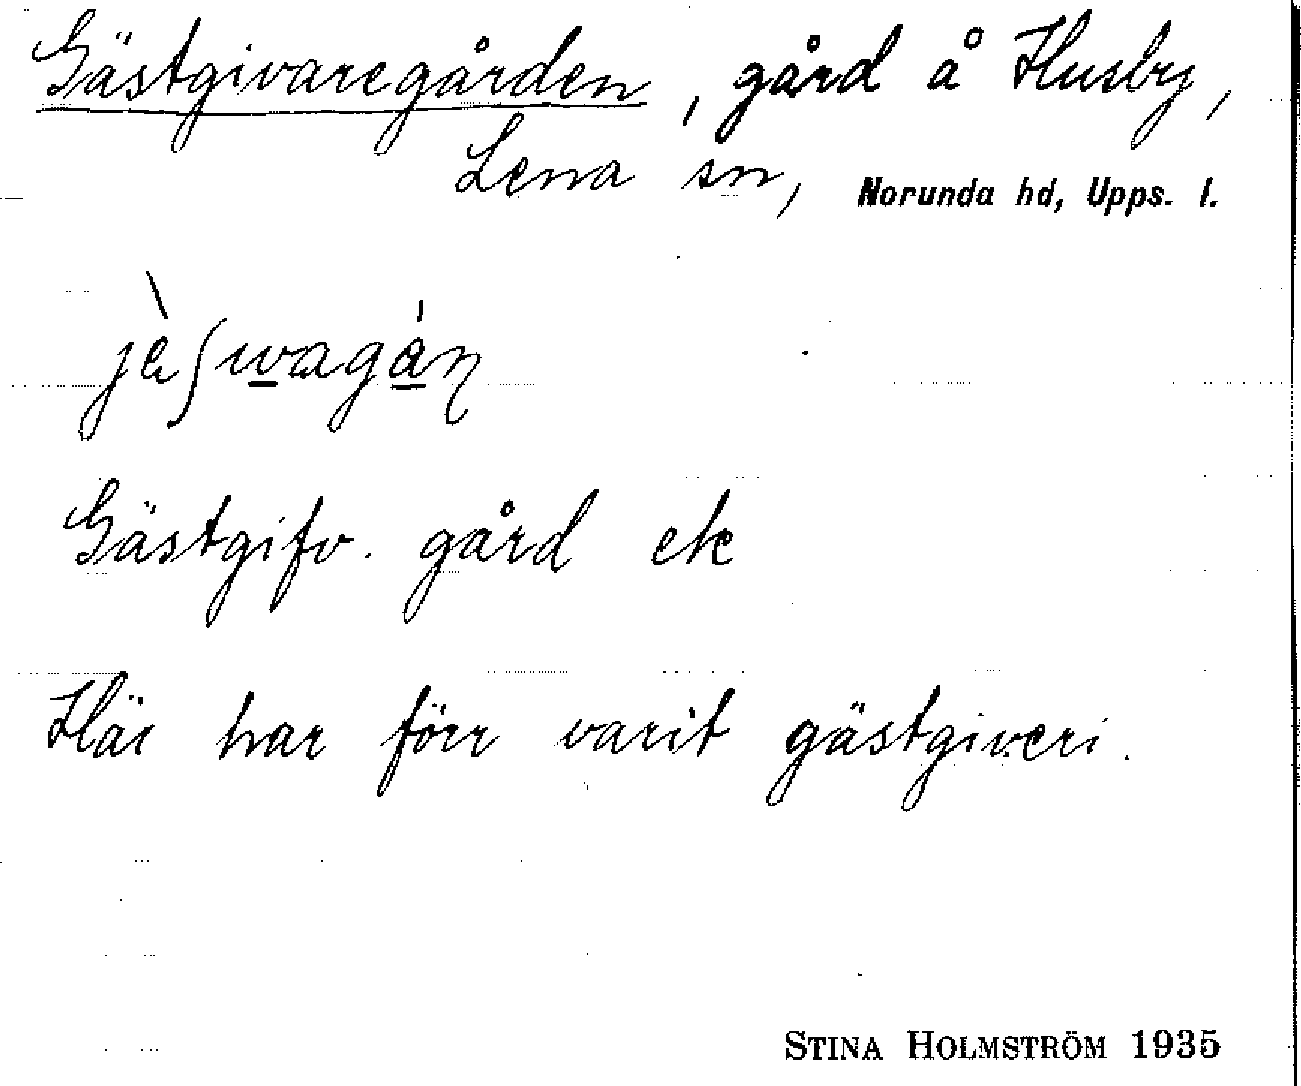 Gästgivaregården, gård å Husby,
Lena sn, Norunda hd, Upps. l.
Gästgifv. gård ek
Här har förr varit gästgiveri.
STINA HOLMSTRÖM 1935